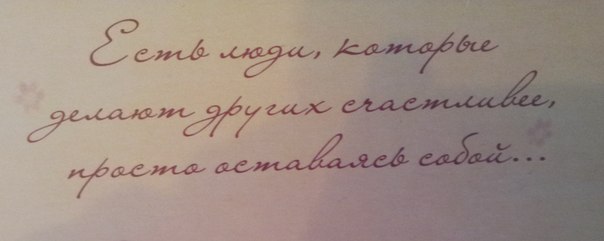 Есть люди, которые
делают других счастливее,
просто оставаясь собой...